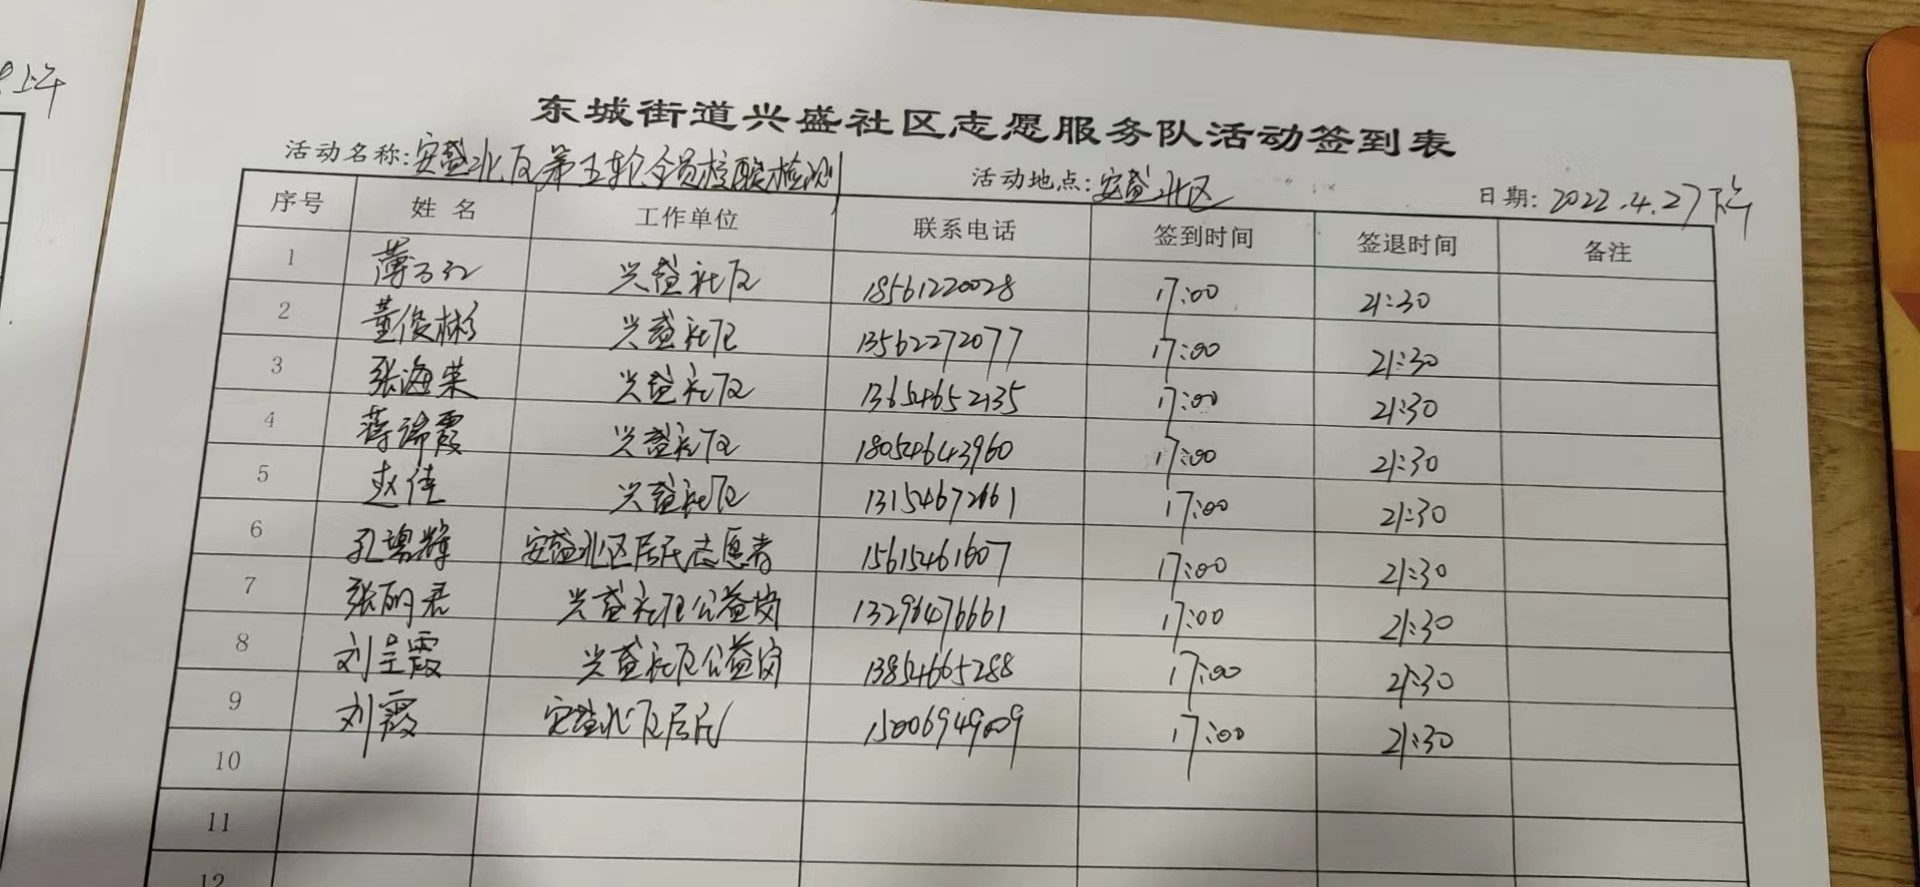 上午
东城街道兴盛社区志愿服务队活动签到表
活动名称:安盛北区第五轮全员核酸检测 活动地点:安盛北区 日期:2022.4.27下午
序号 姓名 工作单位 联系电话 签到时间 签退时间 备注
1 薄子红 兴盛社区 18561220028 17:00 21:30
2 董俊彬 兴盛社区 13562272077 17:00 21:30
3 张海荣 兴盛社区 13654652135 17:00 21:30
4 蒋瑞霞 兴盛社区 18054643960 17:00 21:30
5 赵佳 兴盛社区 13154672661 17:00 21:30
6 孔 辉 安盛北区居民志愿者 15615461607 17:00 21:30
7 张丽君 兴盛社区公益岗 13296476661 17:00 21:30
8 刘呈霞 兴盛社区公益岗 13854665288 17:00 21:30
9 刘霞 安盛北区居民 15006949009 17:00 21:30
10
11
12